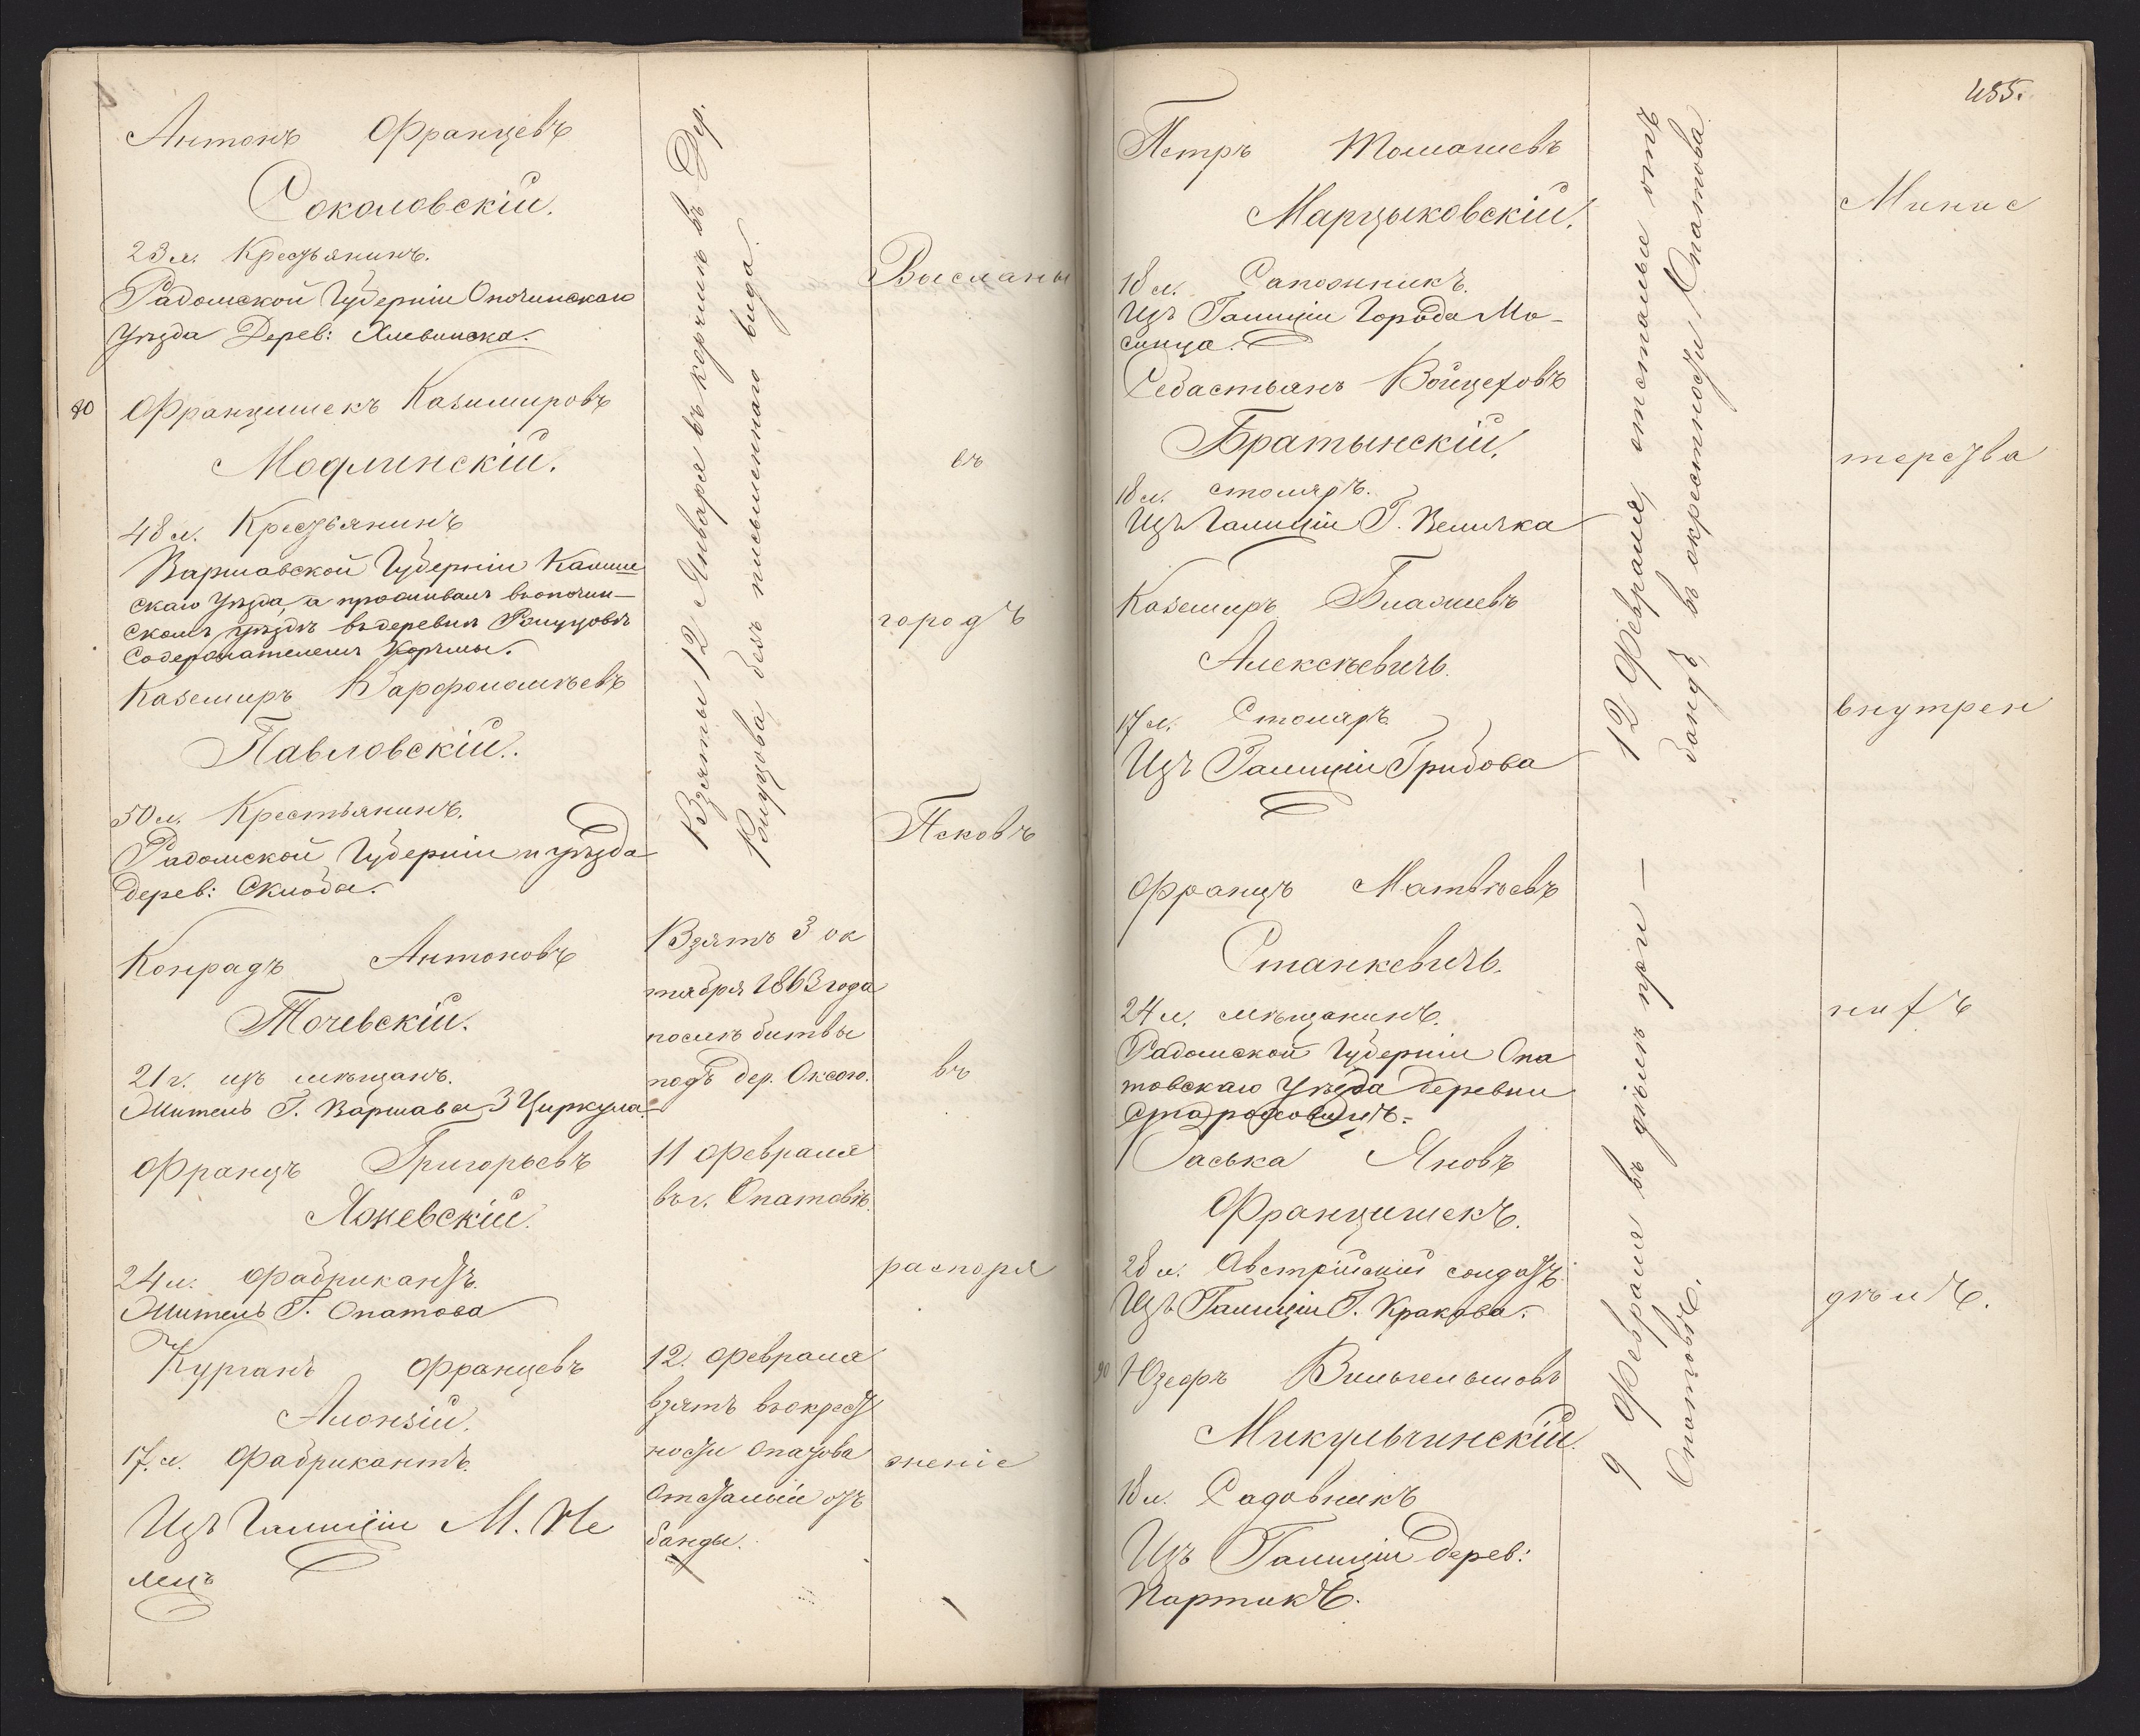 Антонъ Францевъ
Соколовскій.
23 л. Крестьянинъ.
Радомской Губерніи Опочинскаго
Уѣзда Дерев:
80 Францишекъ Казимировъ
Модлинскій.
48 л. Крестьянинъ
Варшавской Губерніи Калиш
скаго Уѣзда, а проживалъ въ опочин-
скомъ уѣздѣ въ деревнѣ
Содержателемъ Корчмы.
Каземиръ Варфоломѣевъ
Павловскій.
50 л. Крестьянинъ.
Радомской Губерніи и уѣзда
дерев: Склоба.
Конрадъ Антоновъ
Точевскій.
21 г. изъ мѣщанъ.
Житель Г. Варшавы 3 Циркула.
Францъ Григорьевъ
Яжевскій.
24 л. Фабрикантъ.
Житель Г. Опатова
Курганъ Францевъ
Алоизій.
17. л. Фабрикантъ.
Изъ Галиціи М. Не
мецъ
Взяты 12 Января въ корчмѣ въ Дер.
безъ письменнаго вида.
Взятъ 3 ок
тября 1863 года
послѣ битвы
подъ дер. Оксою.
11 Февраля
въ г. Опатовѣ.
12. Февраля
взятъ въ окрест
ности Опатова
отсталый отъ
банды.
Высланы
въ
городъ
Псковъ
въ
распоря
женіе
455.
Петръ Томашевъ
Марцыковскій.
18 л. Сапожникъ.
Изъ Галиціи Города Мо-
сцица.
Себастьянъ Войцеховъ
Братынскій.
18 л. столяръ.
Изъ Галиціи Г. Величка
Каземиръ Блажиевъ
Алексѣевичъ.
17 л. Столяръ
Изъ Галиціи Грибова
Францъ Матвѣевъ
Станкевичъ.
24 л. мѣщанинъ.
Радомской Губерніи Опа
товскаго Уѣзда деревни
Саська Яновъ
Францишекъ.
28 л. Австрійскій солдатъ.
Изъ Галиціи Г. Кракова.
90 Юзефъ Вильгельмовъ
Микульчинскій.
18 л. Садовникъ
Изъ Галиціи дерев:
Партикъ.
12 Февраля, отсталые отъ
бандъ, въ окрестности Опатова.
9 Февраля въ дѣлѣ при —
Опатовѣ.
Минис
терства
внутрен
нихъ
дѣлъ.